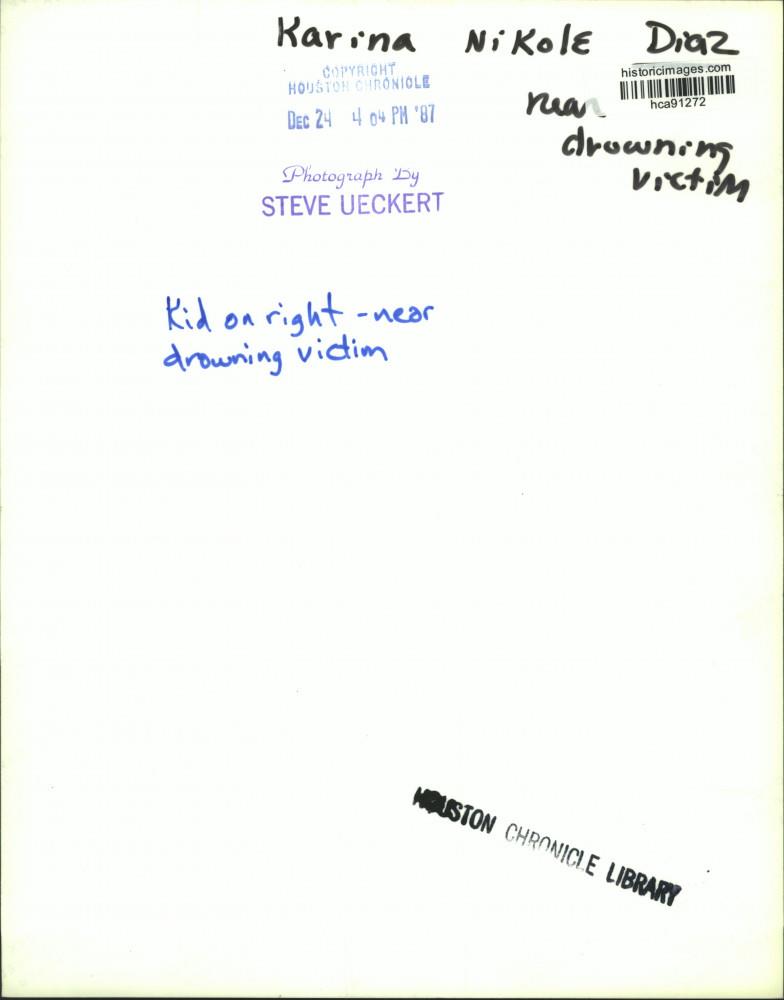 Karina Nikole Diaz
COPYRIGHT
HOUSTON CHRONICLE
DEC 24 4 04 PM '87
historicimages.com
hca91272
near
drowning
victim
Photograph By
STEVE UECKERT
Kid on right - near
drowning victim
HOUSTON CHRONICLE LIBRARY